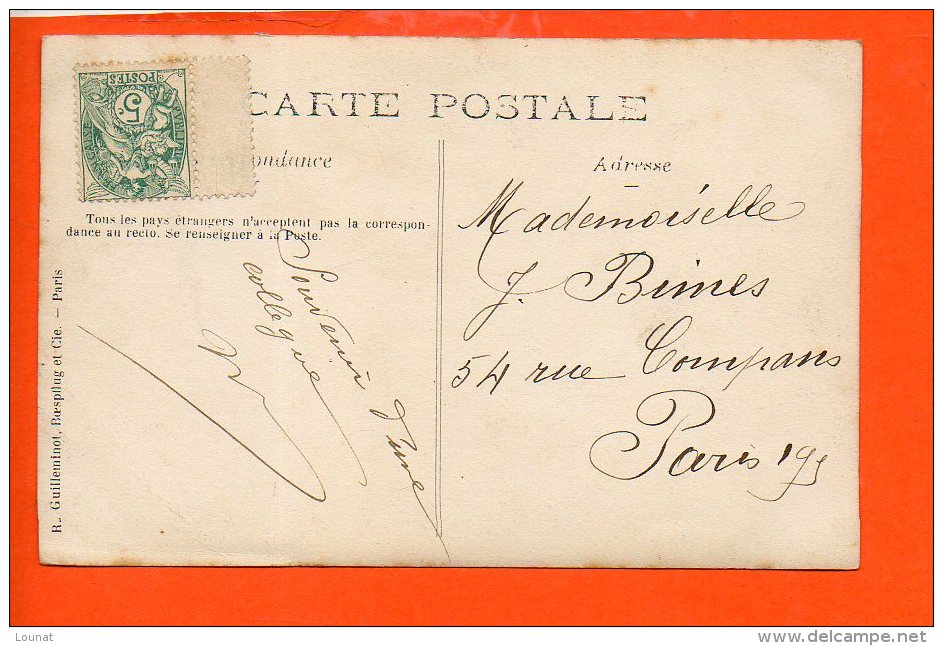 CARTE POSTALE
POSTES
5c
ondance
Adresse
Tous les pays étrangers n'acceptent pas la correspon-
dance au recto. Se renseigner à la Poste.
Souvenir d'une
collegue
Mademoiselle
J. Bimes
54 rue Compans
Paris 19e
R. Guilleminot, Bœspflug et Cie. — Paris
Lounat
www.delcampe.net